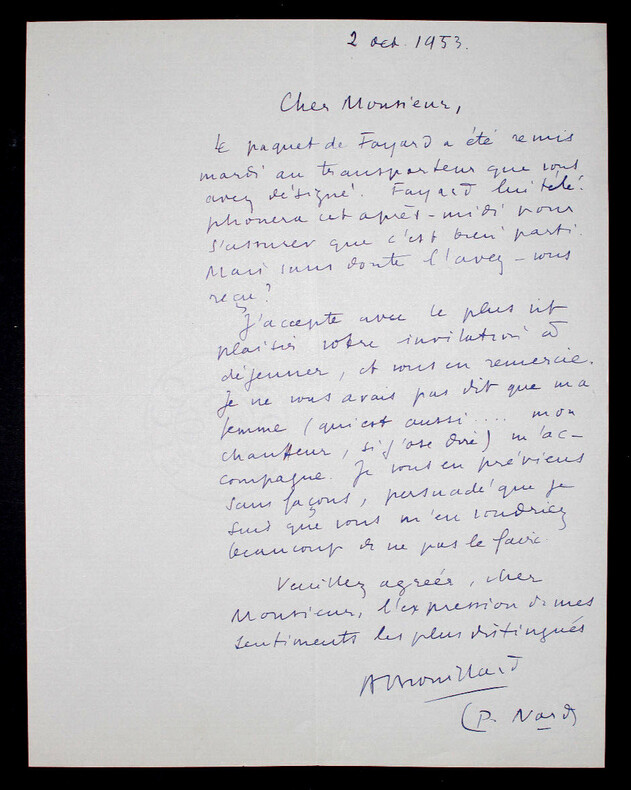 2 oct. 1953.
Cher Monsieur,
Le paquet de Fayard a été remis
mardi au transporteur que vous
avez désigné. Fayard lui télé-
phonera cet après-midi pour
s'assurer que c'est bien parti.
Mais sans doute l'avez-vous
reçu ?
J'accepte avec le plus vif
plaisir votre invitation à
déjeuner, et vous en remercie.
Je ne vous avais pas dit que ma
femme (qui est aussi .... mon
chauffeur, si j'ose dire) m'ac-
compagne. Je vous en préviens
sans façons, persuadé que je
suis que vous m'en voudriez
beaucoup de ne pas le faire.
Veuillez agréer, cher
Monsieur, l'expression de mes
sentiments les plus distingués
ABrouillard
(P. Nord)